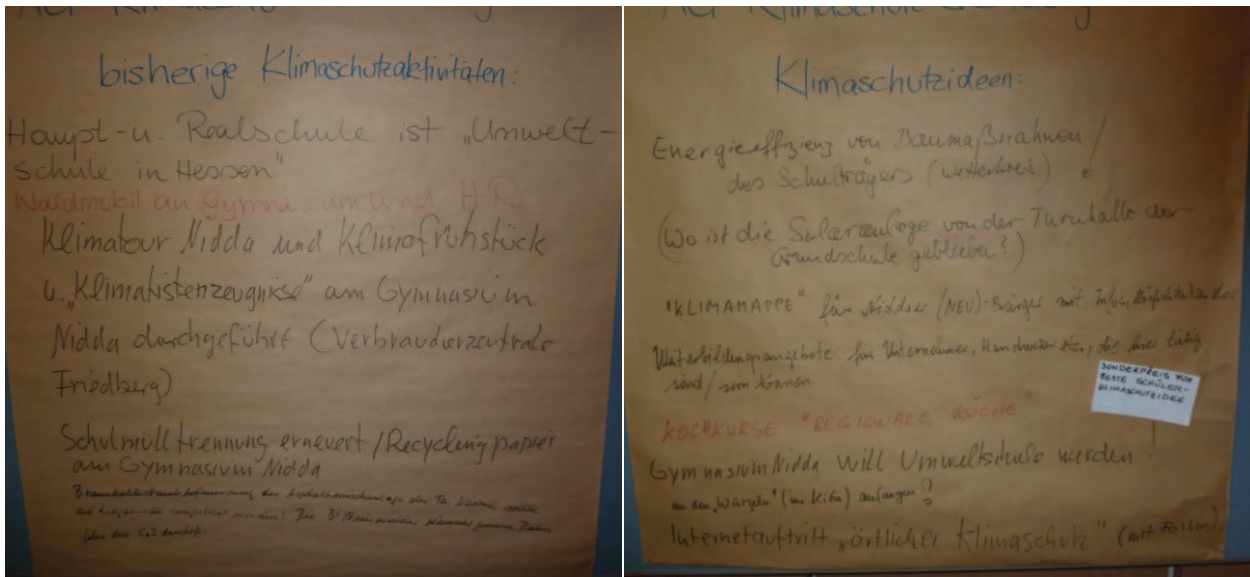 bisherige Klimaschutzaktivitäten:
Haupt- u. Realschule ist „Umwelt-
schule in Hessen"
Waldmobil an Gymnasium und HR
Klimatour Nidda und Klimafrühstück
u. „Klimakistenzeugnisse" am Gymnasium
Nidda durchgeführt (Verbraucherzentrale
Friedberg)
Schulmülltrennung erneuert / Recyclingpapier
am Gymnasium Nidda
der Fa.
über den CO2
Klimaschutzideen:
Energieeffizienz von Baumaßnahmen /
des Schulträgers (Wetterkreis)
(Wo ist die Solaranlage von der Turnhalle der
Grundschule geblieben?)
"KLIMAMAPPE" für Niddaer (NEU)-Bürger mit Infos, Möglichkeiten
Weiterbildungsangebote für Unternehmer, Handwerker etc., die hier tätig
sind / sein können
SONDERPREIS FÜR
BESTE SCHÜLER-
KLIMASCHUTZIDEE
KOCHKURSE "REGIONALE KÜCHE"
Gymnasium Nidda will Umweltschule werden!
an den „Wurzeln" (im Kiga) anfangen?
Internetauftritt „örtlicher Klimaschutz" (mit Forum)